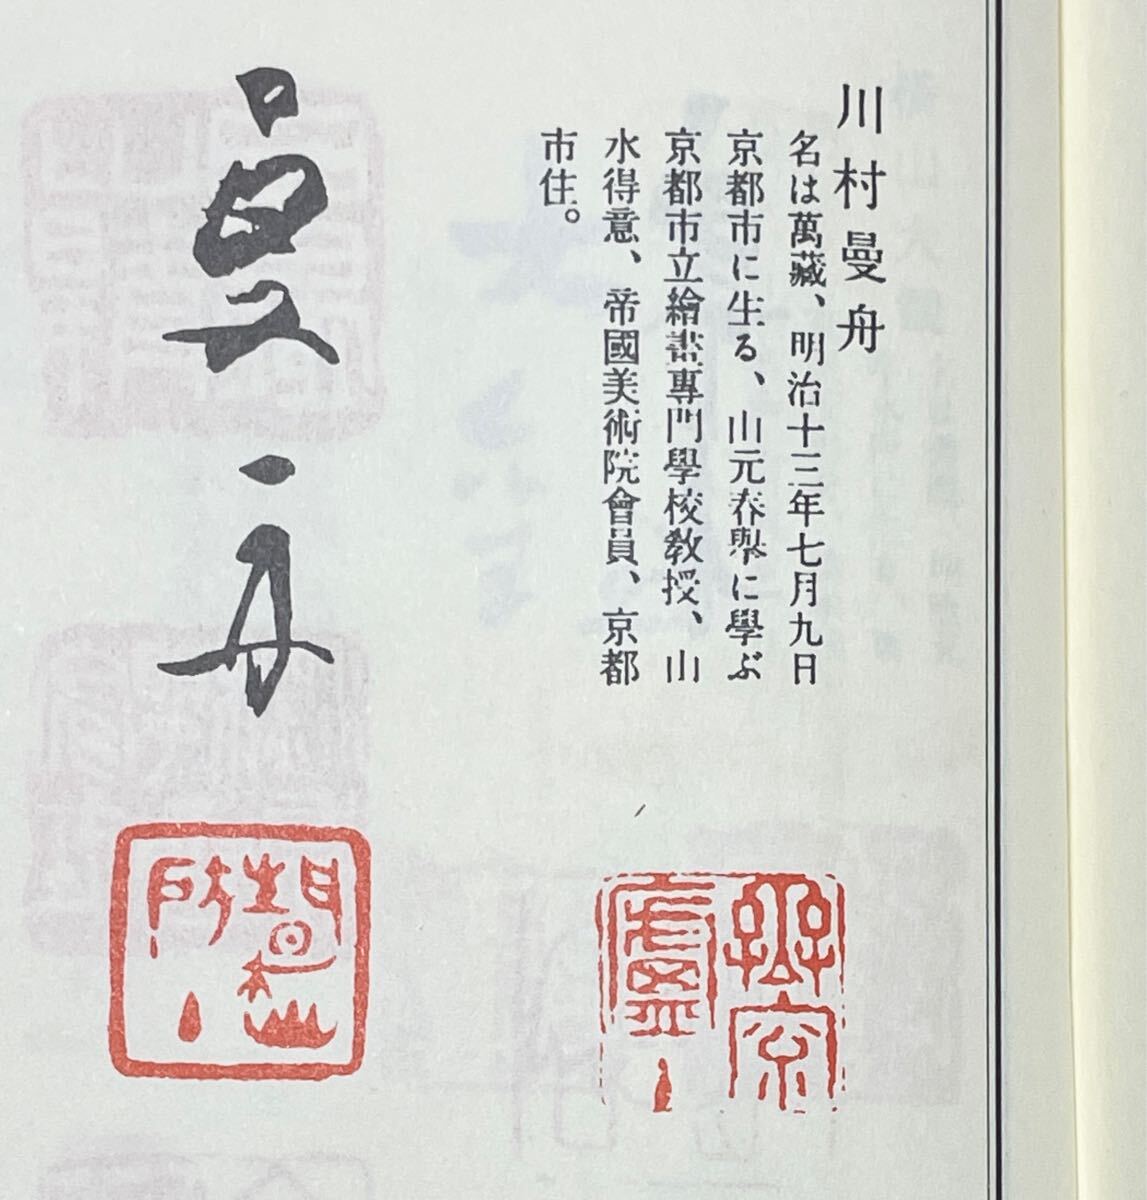 川村曼舟
名は萬藏、明治十三年七月九日
京都市に生る、山元春擧に學ぶ
京都市立繪畫專門學校教授、山
水得意、帝國美術院會員、京都
市住。
曼舟